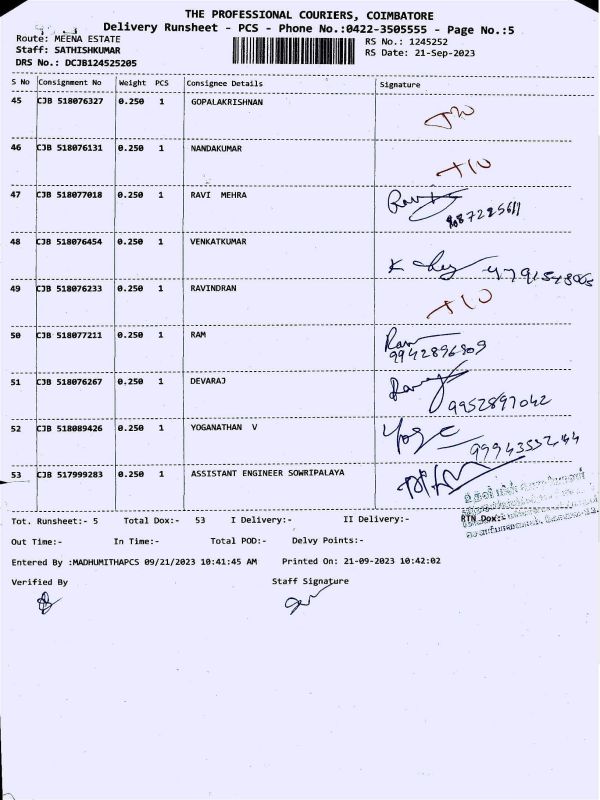 THE PROFESSIONAL COURIERS, COIMBATORE
Delivery Runsheet - PCS - Phone No.:0422-3505555 - Page No.:5
Route: MEENA ESTATE
Staff: SATHISHKUMAR
DRS No.: DCJB124525205
RS No.: 1245252
RS Date: 21-Sep-2023
S No Consignment No Weight PCS Consignee Details Signature
45 CJB 518076327 0.250 1 GOPALAKRISHNAN
46 CJB 518076131 0.250 1 NANDAKUMAR
47 CJB 518077018 0.250 1 RAVI MEHRA
48 CJB 518076454 0.250 1 VENKATKUMAR
49 CJB 518076233 0.250 1 RAVINDRAN
50 CJB 518077211 0.250 1 RAM Ram
9942896809
51 CJB 518076267 0.250 1 DEVARAJ
9952897042
52 CJB 518089426 0.250 1 YOGANATHAN V
53 CJB 517999283 0.250 1 ASSISTANT ENGINEER SOWRIPALAYA
Tot. Runsheet:- 5 Total Dox:- 53 I Delivery:- II Delivery:- RTN Dox:-
Out Time:- In Time:- Total POD:- Delvy Points:-
Entered By :MADHUMITHAPCS 09/21/2023 10:41:45 AM Printed On: 21-09-2023 10:42:02
Verified By Staff Signature